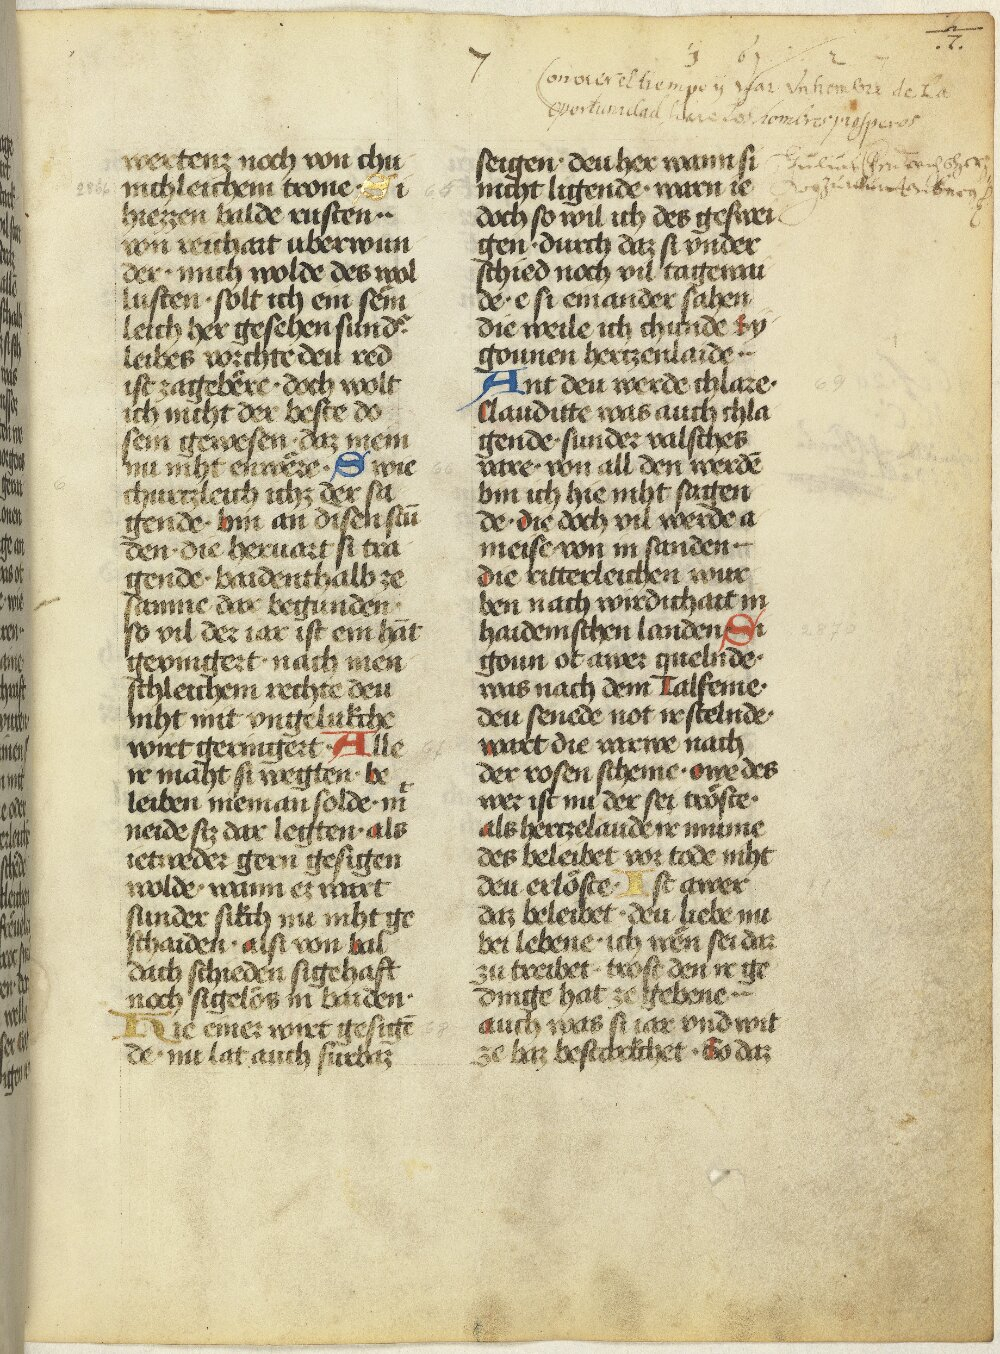 7
.7.
1 6 1 2
Conocer el tiempo y usar
de la
oportunidad, los hombres prosperos
wertenz noch von chu
nichleichem trone · Si
hiezzen balde rusten ··
von reichait uberwun
der · mich wolde des wol
lusten · solt ich ein sem̄
leich her gesehen sund͛
leibes vorchte deu red
ist zagebëre · doch wolt
ich nicht der beste do
sein gewesen · daz mein
nu niht enwëre · Swie
churtzleich ichz der sa
gende · bin an disen stū
den · die hervart si tra
gende · baidenthalb ze
samne dar begunden ·
so vil der iar ist ein hāt
geringert · nach men
schleichem rechte deu
niht mit ungelukche
wirt geringert · Alle
ir maht si wegten · be
leiben nieman solde · mit
neide siz dar legten · als
ietweder gern gesigen
wolde · wann ez wart
sunder sikch nu niht ge
schaiden · alsi von bal
dach schieden sigehaft
noch sigelös in baiden ·
Hie einer wirt gesigē
de · nu lat auch fürbaz
seigen · deu her wann si
nicht ligende · warn ie
doch so wil ich des geswei
gen · durch daz si under
schied noch vil tagewai
de · e si einander sahen
die weile ich chunde Sy
gounen hertzenlaide ··
Ant deu werde chlare ·
Clauditte was auch chla
gende · sunder valsches
vare · von all den werdē
bin ich hie niht sagen
de · die doch vil werde a
meise von in sanden ··
die ritterleichen wur
ben nach wirdichait in
haidenischen landen Si
goun ot awer quelnde ·
was nach dem Talfeine ·
deu senede not ir stelnde ·
wart die varwe nach
der rosen scheine · owe des
wer ist nu der sei tröste ·
als hertzelaude ir mume
des beleibet vor tode niht
deu erlöste · Ist awer
daz beleibet · deu liebe nu
bei lebene · ich wēn sei dar
zu treibet · trost den ir ge
dinge hat ze gebene ··
auch was si iar vnd wit
ze baz bestarkchet · So daz
69
2870